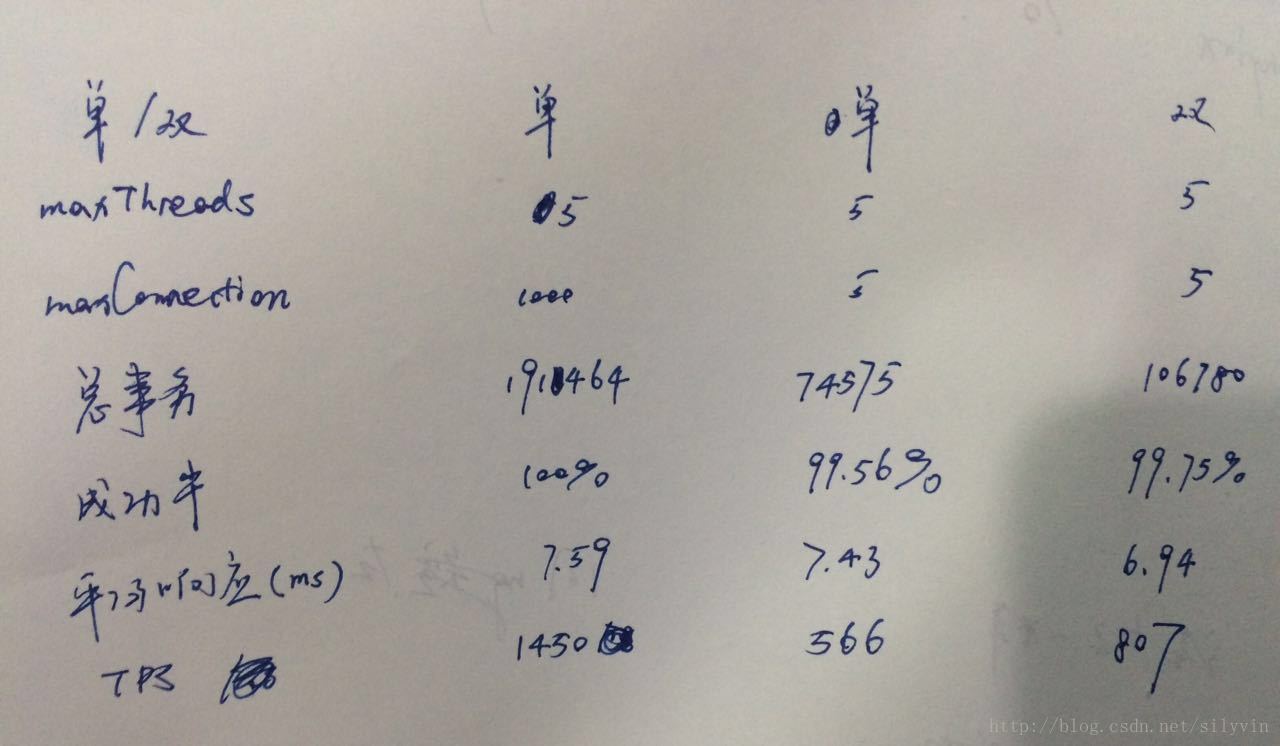 单/双 单 单 双
maxThreads 5 5 5
maxConnection 1000 5 5
总事务 191464 74575 106780
成功率 100% 99.56% 99.75%
平均响应(ms) 7.59 7.43 6.94
TPS 1450 566 807
http://blog.csdn.net/silyvin